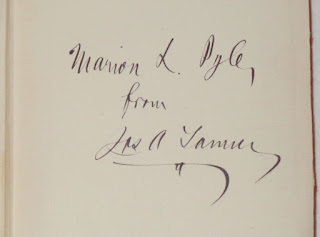 Marion L. Pyle,
from
Jas A Tanner